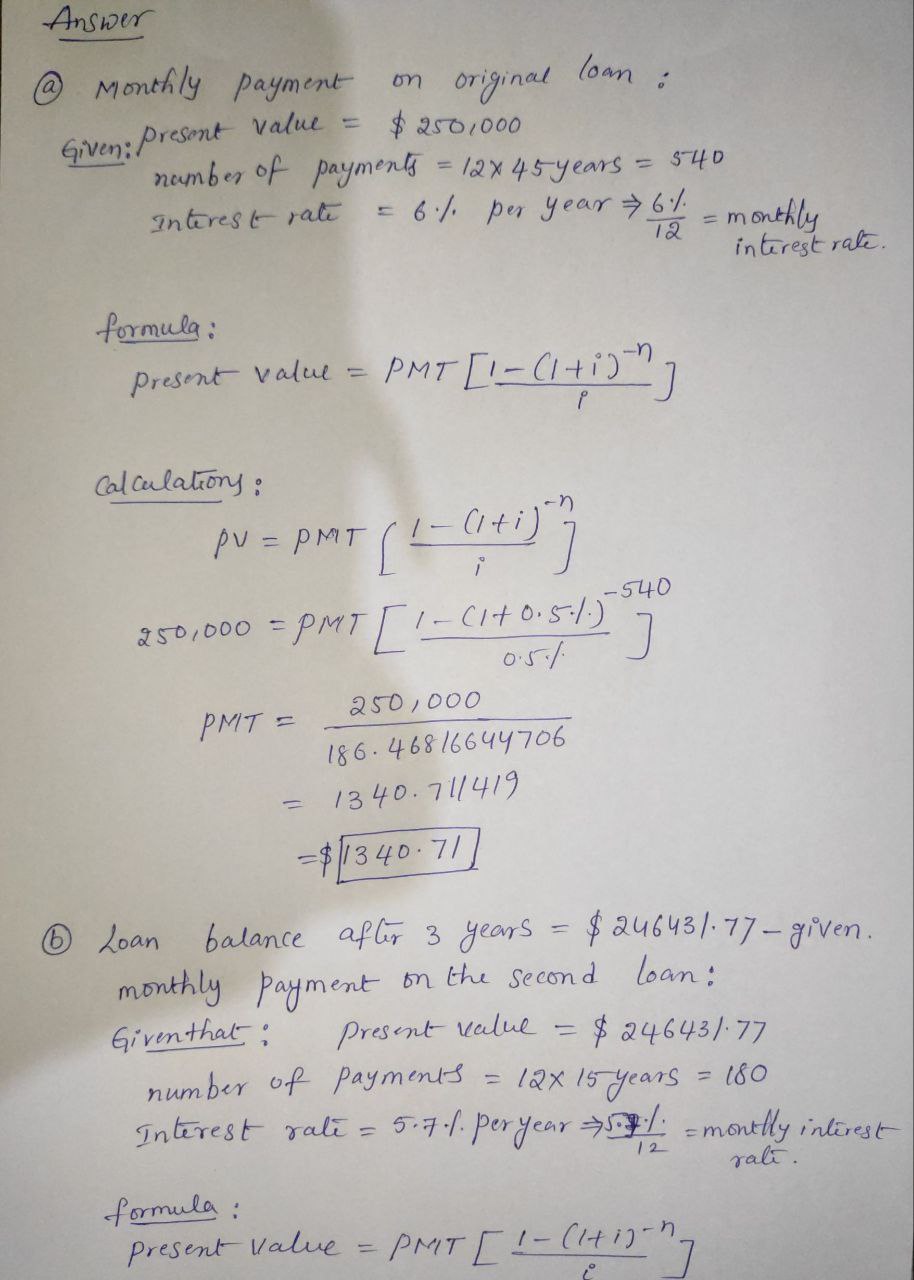 Answer
ⓐ Monthly payment on original loan :
Given: Present value = $ 250,000
number of payments = 12 x 45 years = 540
Interest rate = 6% per year ⇒ 6%/12 = monthly
interest rate.
formula :
present value = PMT [1-(1+i)^-n / i]
Calculations :
PV = PMT [1-(1+i)^-n / i]
250,000 = PMT [1-(1+0.5%)^-540 / 0.5%]
PMT = 250,000 / 186.46816644706
= 1340.711419
= $ 1340.71
ⓑ Loan balance after 3 years = $ 246431.77 - given.
monthly payment on the second loan :
Given that : present value = $ 246431.77
number of payments = 12 x 15 years = 180
Interest rate = 5.7% per year ⇒ 5.7%/12 = monthly interest
rate.
formula :
present value = PMT [1-(1+i)^-n / i]